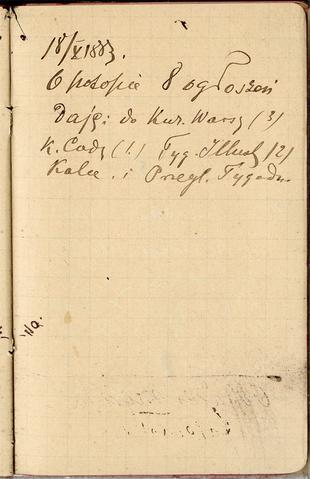 18/X 1883.
O potopie 8 ogłoszeń
Daję: do Kur. Warsz (3)
K. Codz (1.) Tyg. Illust (2)
i Przegl. Tygodn.